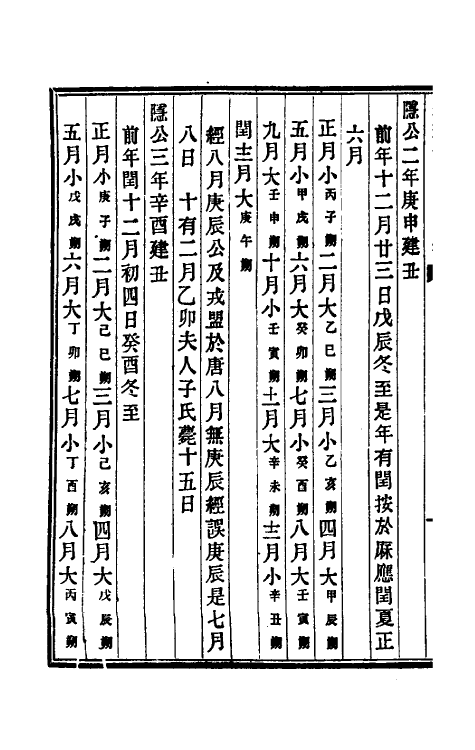 隱公二年庚申建丑
前年十二月廿三日戊辰冬至是年有閏按於厤應閏夏正
六月
正月小丙子朔二月大乙巳朔三月小乙亥朔四月大甲辰朔
五月小甲戌朔六月大癸卯朔七月小癸酉朔八月大壬寅朔
九月大壬申朔十月小壬寅朔十一月大辛未朔十二月小辛丑朔
閏十二月大庚午朔
經八月庚辰公及戎盟於唐八月無庚辰經誤庚辰是七月
八日　十有二月乙卯夫人子氏薨十五日
隱公三年辛酉建丑
前年閏十二月初四日癸酉冬至
正月小庚子朔二月大己巳朔三月小己亥朔四月大戊辰朔
五月小戊戌朔六月大丁卯朔七月小丁酉朔八月大丙寅朔